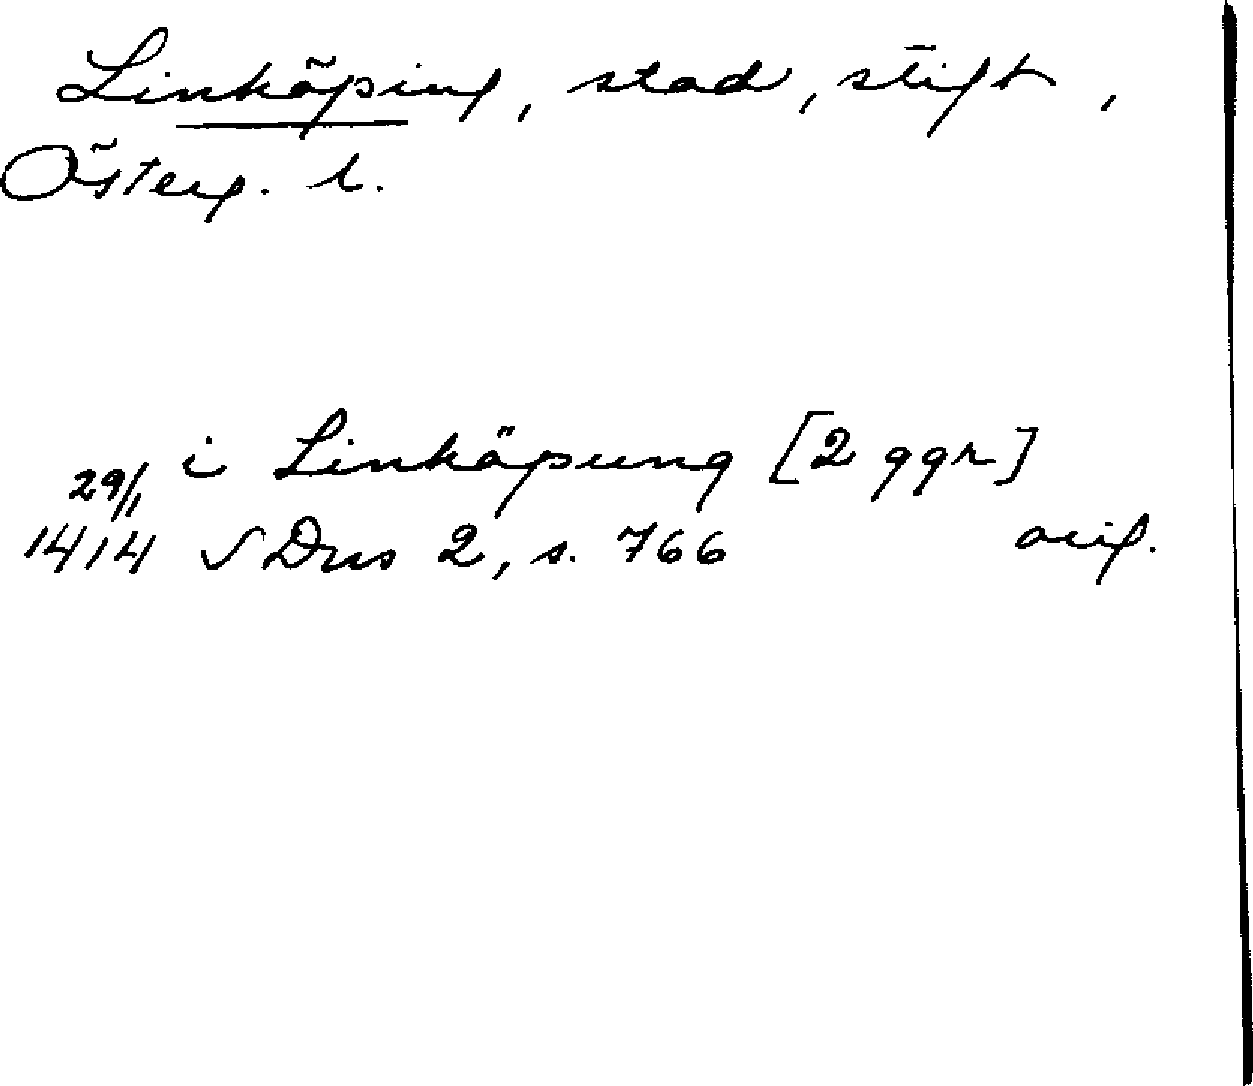 Linköping, stad, stift,
Österg. l.
i Linköpung [2 ggr]
29/1
1414 √ Dns 2, s. 766 orig.